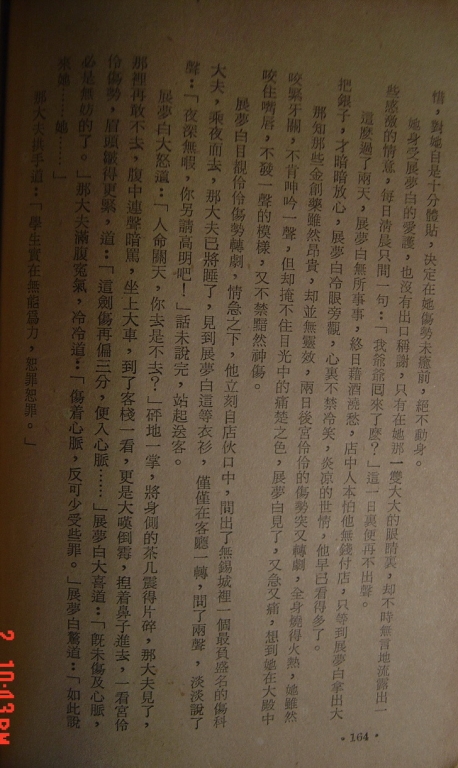 惜，對她自是十分體貼，決定在她傷勢未癒前，絕不動身。
她身受展夢白的愛護，也沒有出口稱謝，只有在她那一雙大大的眼睛裏，却不時無言地流露出一
些感激的情意，每日清晨只問一句：「我爺爺回來了麼？」這一日裏便再不出聲。
這麼過了兩天，展夢白無所事事，終日藉酒澆愁，店中人本怕他無錢付店，只等到展夢白拿出大
把銀子，才暗暗放心，展夢白冷眼旁觀，心裏不禁冷笑，炎凉的世情，他早已看得多了。
那知那些金創藥雖然昂貴，却並無靈效，兩日後宮伶伶的傷勢突又轉劇，全身燒得火熱，她雖然
咬緊牙關，不肯呻吟一聲，但却掩不住目光中的痛楚之色，展夢白見了，又急又痛，想到她在大殿中
咬住嘴唇，不發一聲的模樣，又不禁黯然神傷。
展夢白目覩伶伶傷勢轉劇，情急之下，他立刻自店伙口中，問出了無錫城裡一個最負盛名的傷科
大夫，乘夜而去，那大夫已將睡了，見到展夢白這等衣衫，僅僅在客廳一轉，問了兩聲，淡淡說了
聲：「夜深無暇，你另請高明吧！」話未說完，站起送客。
展夢白大怒道：「人命關天，你去是不去？」砰地一掌，將身側的茶几震得片碎，那大夫見了，
那裡再敢不去，腹中連聲暗罵，坐上大車，到了客棧一看，更是大嘆倒霉，揑着鼻子進去，一看宮伶
伶傷勢，眉頭皺得更緊，道：「這劍傷再偏三分，便入心脈……」展夢白大喜道：「旣未傷及心脈，
必是無妨的了。」那大夫滿腹寃氣，冷冷道：「傷着心脈，反可少受些罪。」展夢白驚道：「如此說
來她……她……」
那大夫拱手道：「學生實在無能爲力，恕罪恕罪。」
•164•
2 10:43 PM